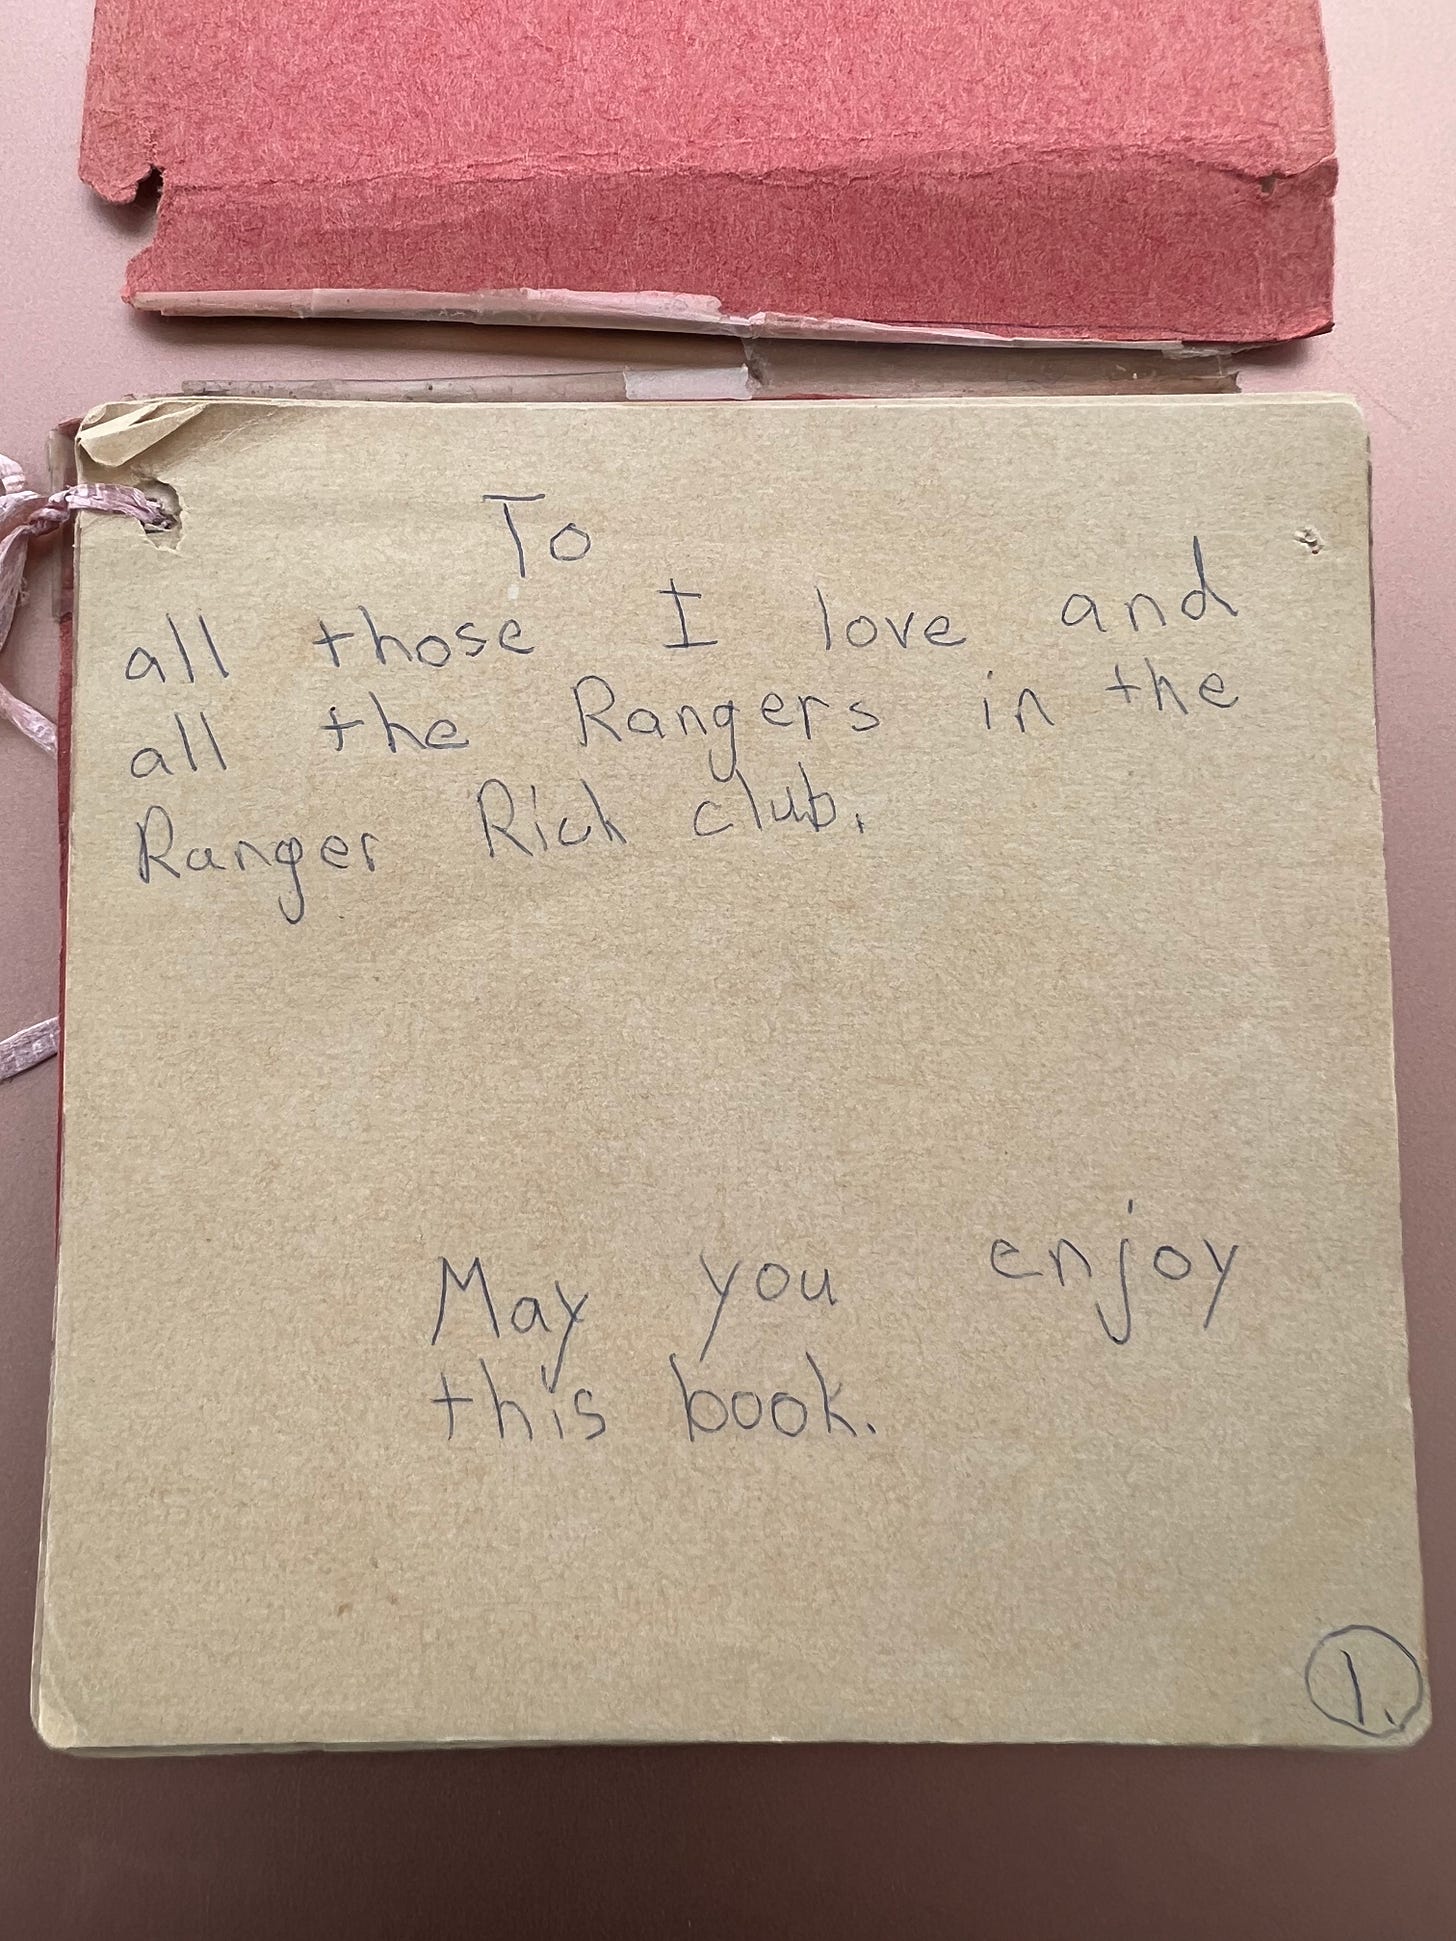 To
all those I love and
all the Rangers in the
Ranger Rich club.
May you enjoy
this book.
1.